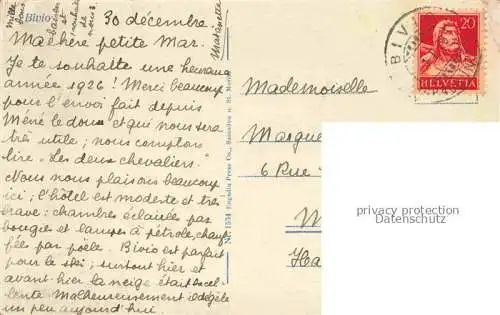 Mille
bons
baisers
et
souhaits
de
nous 3
Bivio
30 décembre.
Ma chère petite Mar.
Je te souhaite une heureuse
année 1926! Merci beaucoup
pour l'envoi fait depuis
et qui nous sera
très utile; nous comptons
lire "Les deux chevaliers."
Nous nous plaisons beaucoup
ici; l'hôtel est modeste et très
brave: chambres éclairées par
bougies et lampes à pétrole, chauf-
fées par poêle. Bivio est parfait
pour le ski; surtout hier et
avant hier la neige était excel-
lente. Malheureusement il dégèle
un peu aujourd'hui.
No. 1534 Engadin Press Co., Samaden u. St. Moritz
BIVIO
20
HELVETIA
Mademoiselle
Margue
6 Rue
privacy protection
Datenschutz